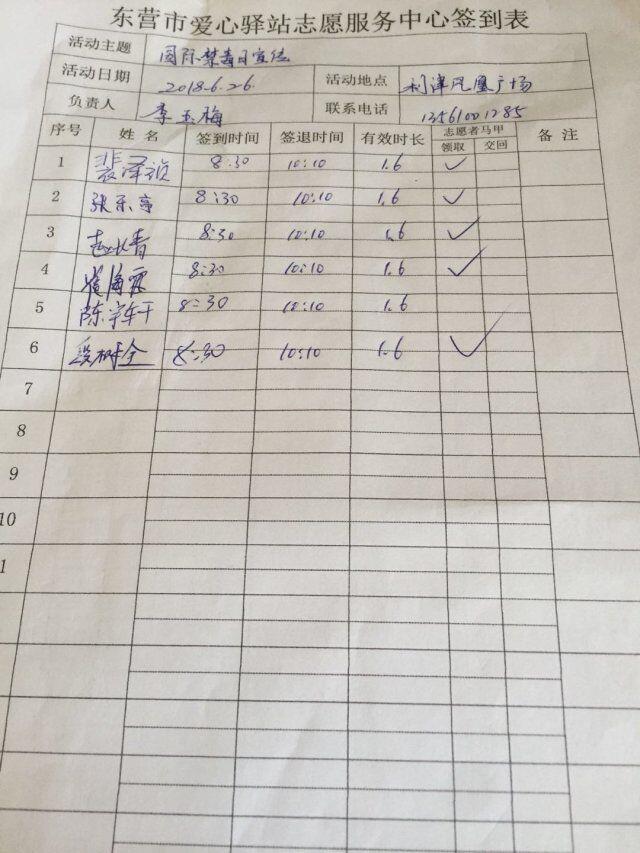 东营市爱心驿站志愿服务中心签到表
活动主题 国际禁毒日宣传
活动日期 2018.6.26 活动地点 利津凤凰广场
负责人 李玉梅 联系电话 13561001285
序号 姓名 签到时间 签退时间 有效时长 志愿者马甲 备注
领取 交回
1 裴泽祯 8:30 10:10 1.6 ✓
2 张乐亭 8:30 10:10 1.6 ✓
3 赵长青 8:30 10:10 1.6 ✓
4 海霖 8:30 10:10 1.6 ✓
5 陈宇轩 8:30 10:10 1.6
6 段树全 8:30 10:10 1.6 ✓
7
8
9
10
1